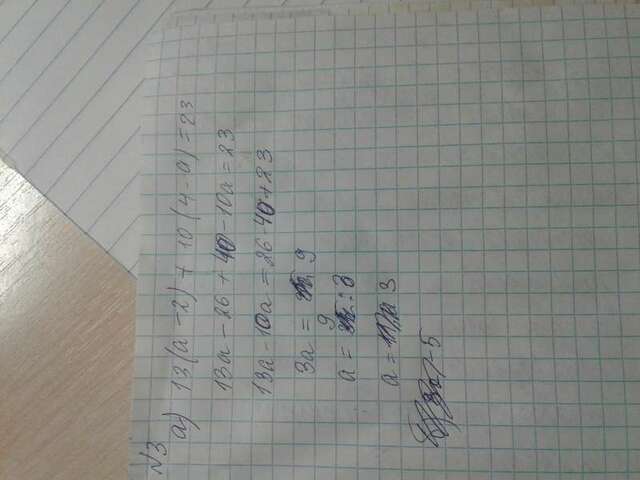 N3
а) 13(a-2)+10(4-a)=23
13a-26+40-10a=23
13a-10a=26 40+23
3a= 9
a= 9:3
a= 3